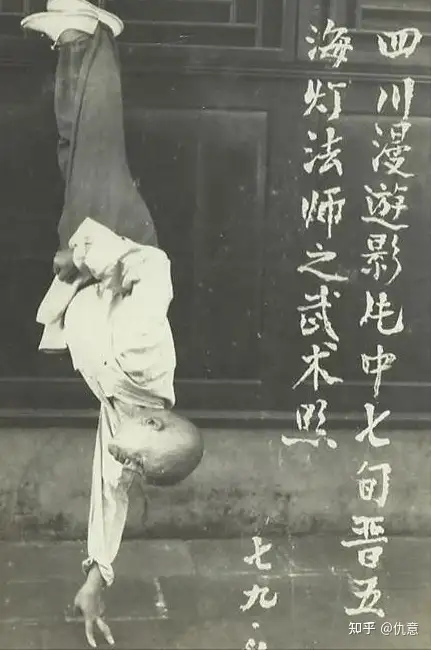 四川漫遊影片中七旬晋五
海灯法师之武术照
七九.
知乎 @仇意